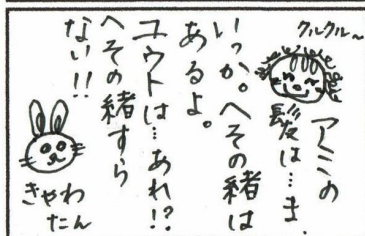 クルクル〜
アミの
髪は…ま、
いっか。へその緒は
あるよ。
ユウトは…あれ!?
へその緒すら
ない!!
きゃわ
たん